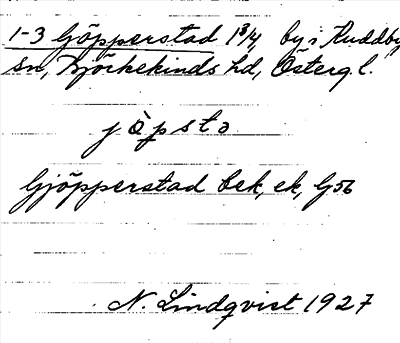 1-3 Göpperstad 1 3/4, by i Ruddby
sn, Björkekinds hd, Östergl.
jö̀psta
Gjöpperstad bek, ek, G56
N. Lindqvist 1927